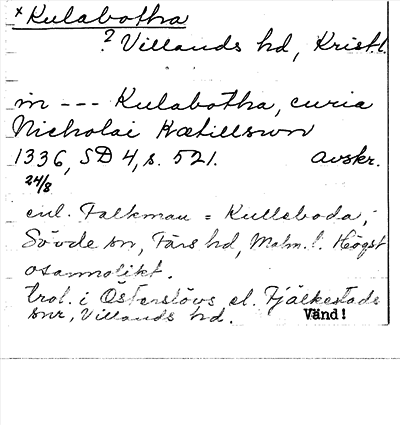 x Kulabotha
? Villands hd, Krist.l.
in --- Kulabotha, curia
Nicholai Kætillsson
1336, SD 4, s. 521. avskr.
24/8
enl. Falkman = Kulleboda,
Sövde sn, Färs hd, Malm.l. Högst
osannolikt.
Trol. i Österslövs el. Fjälkestads
snr, Villands hd.
Vänd!